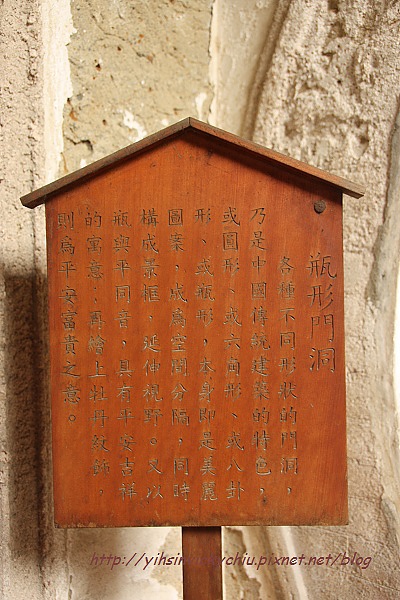 瓶形門洞
各種不同形狀的門洞，
乃是中國傳統建築的特色，
或圓形、或六角形、或八卦
形、或瓶形，本身即是美麗
圖案，成為空間分隔，同時
構成景框，延伸視野。又以
瓶與平同音，具有平安吉祥
的寓意；再繪上牡丹紋飾，
則為平安富貴之意。